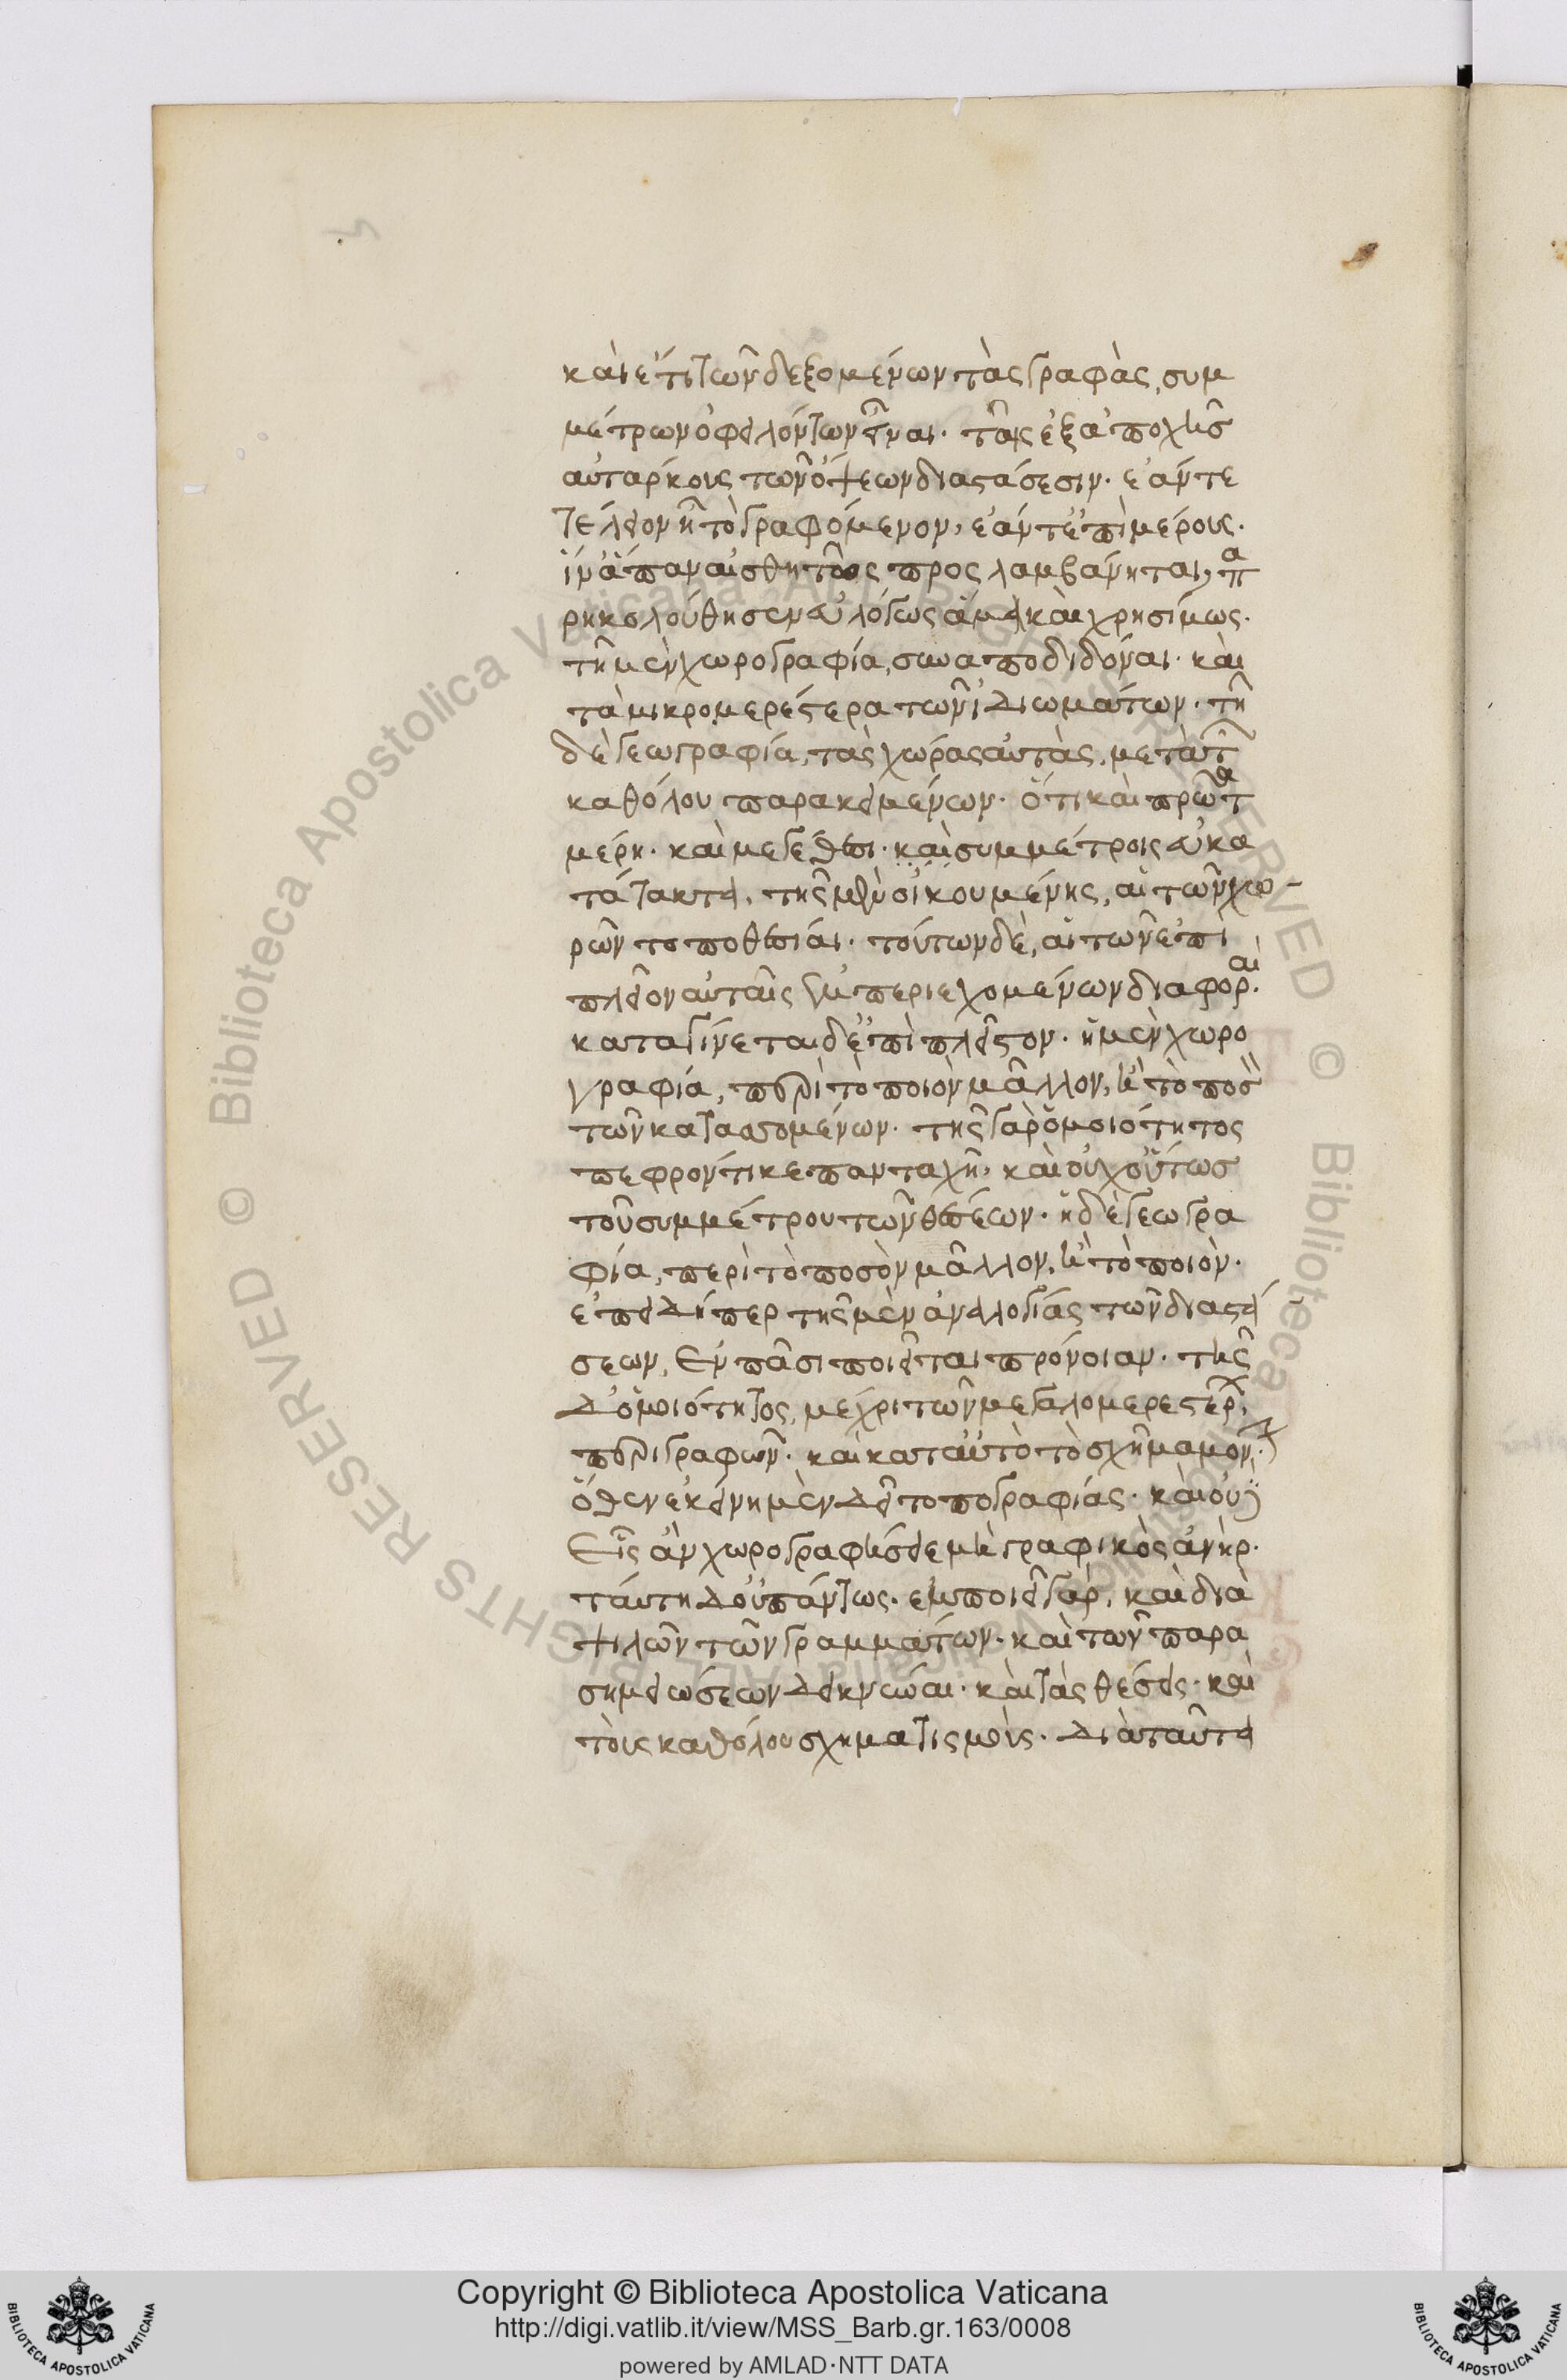 καὶ ἔτι τῶν δεξομένων τὰς γραφὰς, συμ
μέτρων ὀφειλόντων εἶναι· ταῖς ἐξ ἀποχῆς
αὐτάρκους τῶν ὄψεων διαστάσεσιν· ἐάν τε
τέλειον ἦ τὸ γραφόμενον, ἐάν τ' ἐπὶ μέρους·
ἵν' ἅπαν αἰσθητῶς προς λαμβάνηται, πα
ρηκολούθησεν εὐλόγως ἅμα καὶ χρησίμως·
τῆ μὲν χωρογραφία, σω αποδιδόναι· καὶ
τὰ μικρομερέστερα τῶν ἰδιωμάτων· τῆ
δὲ γεωγραφία, τὰς χώρας αυτὰς, μετὰ τῶν
καθόλου παρακειμένων· ὅτι καὶ πρῶτα
μέρη· καὶ μεγέθεσι· καὶ συμμέτροις εὐκα
τάτακτα, τῆς μὲν οἰκουμένης, αἱ τῶν χω
ρῶν τοποθεσίαι· τούτων δὲ, αἱ τῶν ἐπὶ
πλεῖον αὐταῖς ἐμπεριεχομένων διαφοραὶ.
καταγίνεται δ' ἐπὶ πλεῖστον· ἡ μὲν χωρο
γραφία, περὶ τὸ ποιὸν μᾶλλον, ἢ τὸ ποσὸν
τῶν κατατασσομένων· τῆς γὰρ ὁμοιότητος
πεφρόντικε πανταχῆ, καὶ οὐχ οὕτως
τοῦ συμμέτρου τῶν θέσεων· ἡ δὲ γεωγρα
φία, περὶ τὸ ποσὸν μᾶλλον, ἢ τὸ ποιὸν·
ἐπειδήπερ τῆς μὲν ἀναλογίας τῶν διαστά
σεων, ἐν πᾶσι ποιεῖται πρόνοιαν· τῆς
δ' ὁμοιότητος, μέχρι τῶν μεγαλομερεστέρων
περιγραφῶν· καὶ κατ' αὐτὸ τὸ σχῆμα μόνον·
ὅθεν ἐκείνη μὲν δεῖ τοπογραφίας· καὶ οὐδ
εῖς ἂν χωρογραφήσειε μὴ γραφικὸς ἀνὴρ·
ταύτη δ' οὐ πάντως· ἐμποιεῖ γὰρ, καὶ διὰ
ψιλῶν τῶν γραμμάτων· καὶ τῶν παρα
σημειώσεων δεικνύναι· καὶ τὰς θέσεις· καὶ
τοὺς καθόλου σχηματισμοὺς· διὰ ταῦτα
Copyright © Biblioteca Apostolica Vaticana
http://digi.vatlib.it/view/MSS_Barb.gr.163/0008
powered by AMLAD·NTT DATA